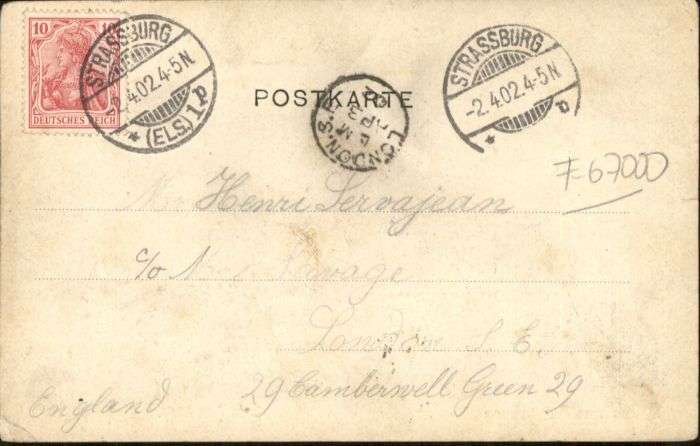 10
DEUTSCHES REICH
STRASSBURG
-2.4.02.4-5N.
* (ELS.) 1 p
STRASSBURG
-2.4.02.4-5N.
*
POSTKARTE
LONDON
AP 3
02
F 67000
Henri Servajean
c/o
London S. E.
29 Camberwell Green 29
England